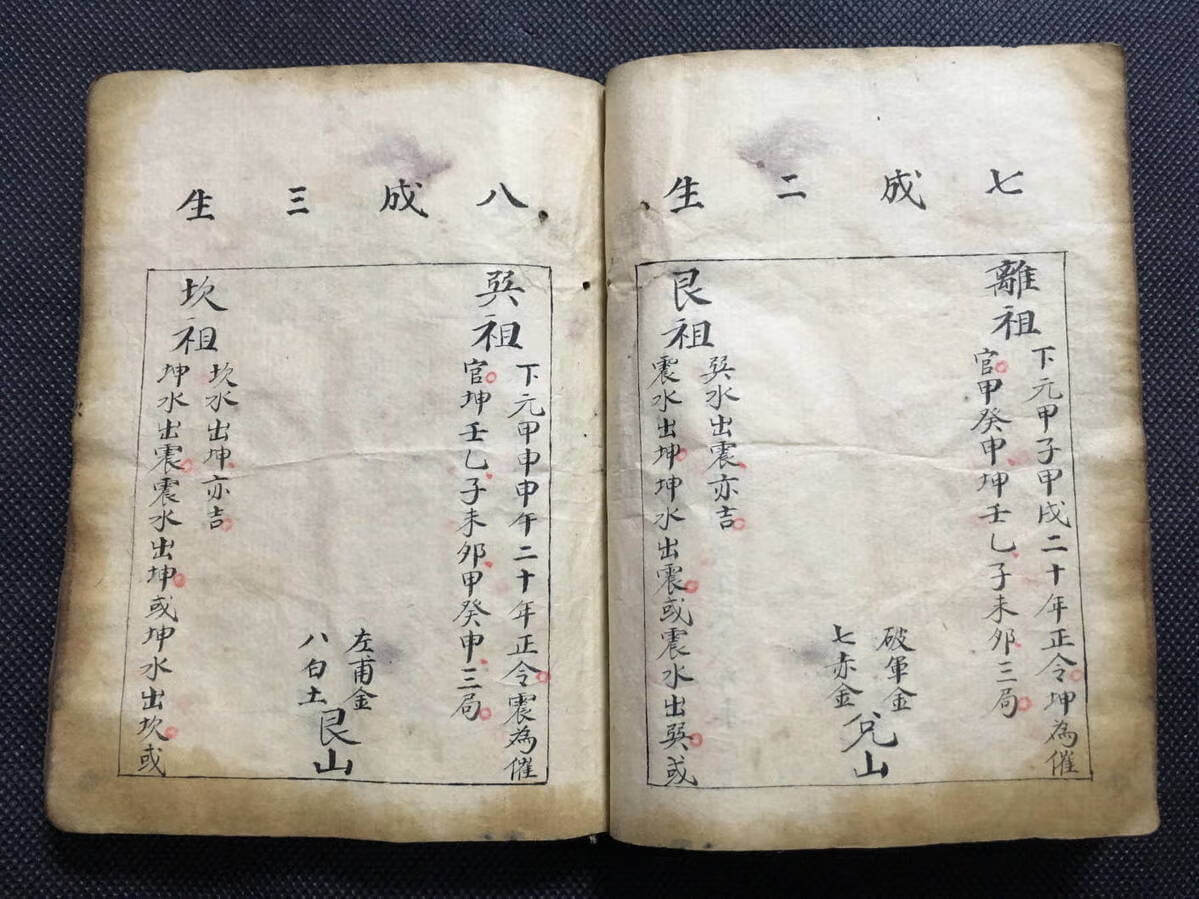 七成二生
離祖
下元甲子甲戌二十年正令坤為催
官甲癸申坤壬乙子未卯三局
破軍金
七赤金
兌山
艮祖
巽水出震亦吉
震水出坤坤水出震或震水出巽或
八成三生
巽祖
下元甲申申午二十年正令震為催
官坤壬乙子未卯甲癸申三局
左甫金
八白土
艮山
坎祖
坎水出坤亦吉
坤水出震震水出坤或坤水出坎或